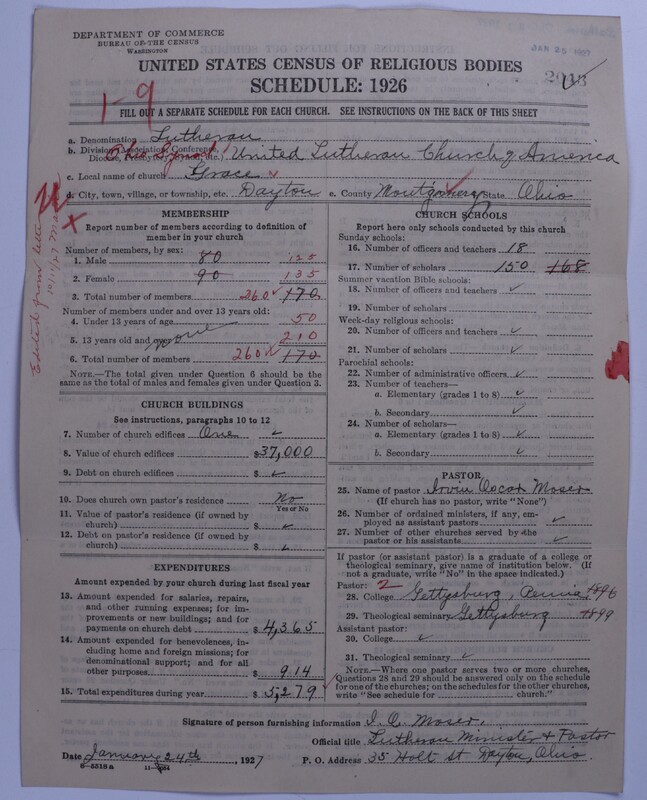 DEPARTMENT OF COMMERCE
BUREAU OF THE CENSUS
WASHINGTON
UNITED STATES CENSUS OF RELIGIOUS BODIES
SCHEDULE: 1926
1-9
FILL OUT A SEPARATE SCHEDULE FOR EACH CHURCH. SEE INSTRUCTIONS ON THE BACK OF THIS SHEET
a. Denomination Lutheran
b. Division (Association, Conference, Diocese, Presbytery, Synod, etc.) United Lutheran Church of America
c. Local name of church Grace
d. City, town, village, or township, etc. Dayton e. County Montgomery State Ohio
Edited from letter
MEMBERSHIP
Report number of members according to definition of
member in your church
Number of members, by sex:
1. Male 80 125
2. Female 90 135
3. Total number of members 260 170
Number of members under and over 13 years old:
4. Under 13 years of age 50
5. 13 years old and over none 210
6. Total number of members 260 170
NOTE.—The total given under Question 6 should be
the same as the total of males and females given under Question 3.
CHURCH BUILDINGS
See instructions, paragraphs 10 to 12
7. Number of church edifices One
8. Value of church edifices $37,000
9. Debt on church edifices $
10. Does church own pastor's residence No
Yes or No
11. Value of pastor's residence (if owned by
church) $
12. Debt on pastor's residence (if owned by
church) $
EXPENDITURES
Amount expended by your church during last fiscal year
13. Amount expended for salaries, repairs,
and other running expenses; for im-
provements or new buildings; and for
payments on church debt $4,365
14. Amount expended for benevolences, in-
cluding home and foreign missions; for
denominational support; and for all
other purposes $914
15. Total expenditures during year $5,279
CHURCH SCHOOLS
Report here only schools conducted by this church
Sunday schools:
16. Number of officers and teachers 18
17. Number of scholars 150 168
Summer vacation Bible schools:
18. Number of officers and teachers
19. Number of scholars
Week-day religious schools:
20. Number of officers and teachers
21. Number of scholars
Parochial schools:
22. Number of administrative officers
23. Number of teachers—
a. Elementary (grades 1 to 8)
b. Secondary
24. Number of scholars—
a. Elementary (grades 1 to 8)
b. Secondary
PASTOR
25. Name of pastor Irvin Oscar Moser
(If church has no pastor, write "None")
26. Number of ordained ministers, if any, em-
ployed as assistant pastors
27. Number of other churches served by the
pastor or his assistants
If pastor (or assistant pastor) is a graduate of a college or
theological seminary, give name of institution below. (If
not a graduate, write "No" in the space indicated.)
Pastor: 2
28. College Gettysburg, Penna. 1896
29. Theological seminary Gettysburg 1899
Assistant pastor:
30. College
31. Theological seminary
NOTE.—Where one pastor serves two or more churches,
Questions 28 and 29 should be answered only on the schedule
for one of the churches; on the schedules for the other churches,
write "See schedule for church."
Signature of person furnishing information I. O. Moser,
Official title Lutheran Minister & Pastor
Date January 24th, 1927 P. O. Address 35 Holt St Dayton, Ohio.
8-5518a